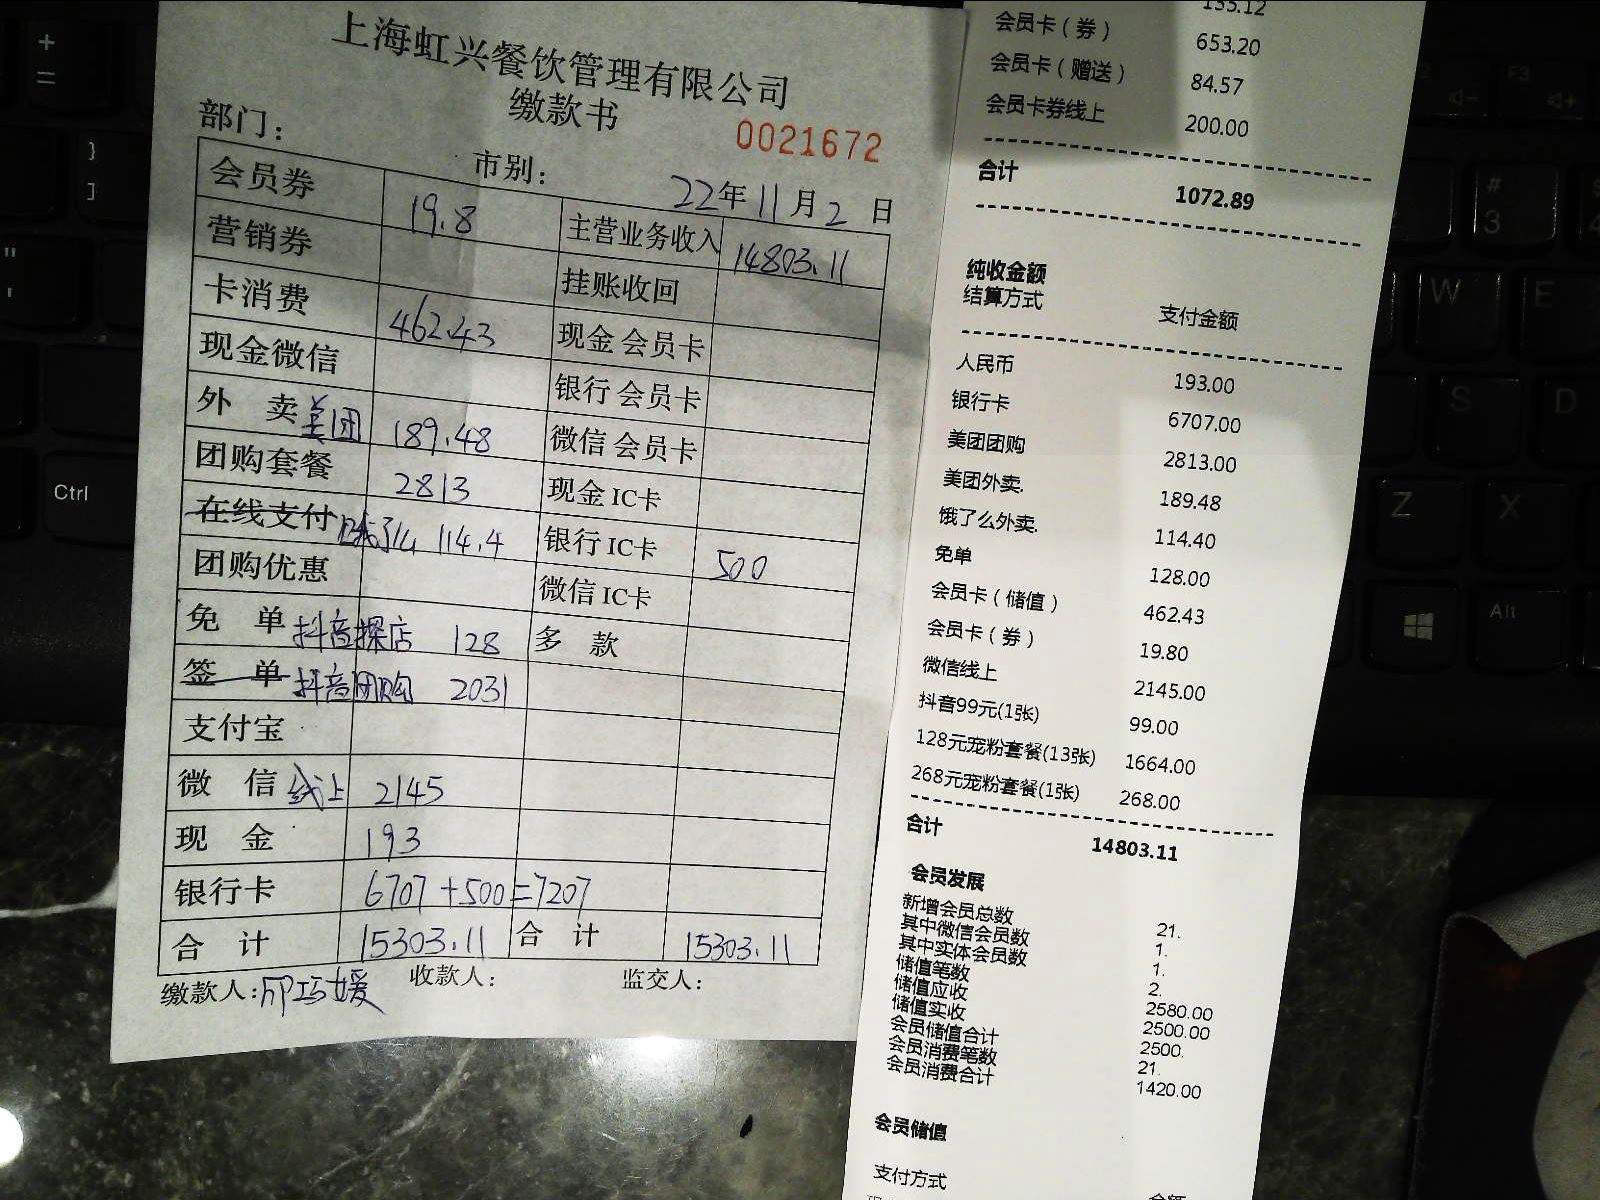 上海虹兴餐饮管理有限公司
缴款书
0021672
部门：
市别：
22年11月2日
会员券 19.8 主营业务收入 14803.11
营销券 挂账收回
卡消费 462.43 现金会员卡
现金微信 银行会员卡
外卖美团 189.48 微信会员卡
团购套餐 2813 现金IC卡
在线支付 饿了么 114.4 银行IC卡 500
团购优惠 微信IC卡
免单 抖音探店 128 多款
签单 抖音团购 2031
支付宝
微信线上 2145
现金 193
银行卡 6707+500=7207
合计 15303.11 合计 15303.11
缴款人： 收款人： 监交人：
135.12
会员卡（券） 653.20
会员卡（赠送） 84.57
会员卡券线上 200.00
合计 1072.89
纯收金额
结算方式 支付金额
人民币 193.00
银行卡 6707.00
美团团购 2813.00
美团外卖. 189.48
饿了么外卖. 114.40
免单 128.00
会员卡（储值） 462.43
会员卡（券） 19.80
微信线上 2145.00
抖音99元(1张) 99.00
128元宠粉套餐(13张) 1664.00
268元宠粉套餐(1张) 268.00
合计 14803.11
会员发展
新增会员总数 21.
其中微信会员数 1.
其中实体会员数 1.
储值笔数 2.
储值应收 2580.00
储值实收 2500.00
会员储值合计 2500.
会员消费笔数 21.
会员消费合计 1420.00
会员储值
支付方式 金额
+
=
}
]
"
'
Ctrl
F3
#
3
W
E
S
D
Z
X
Alt